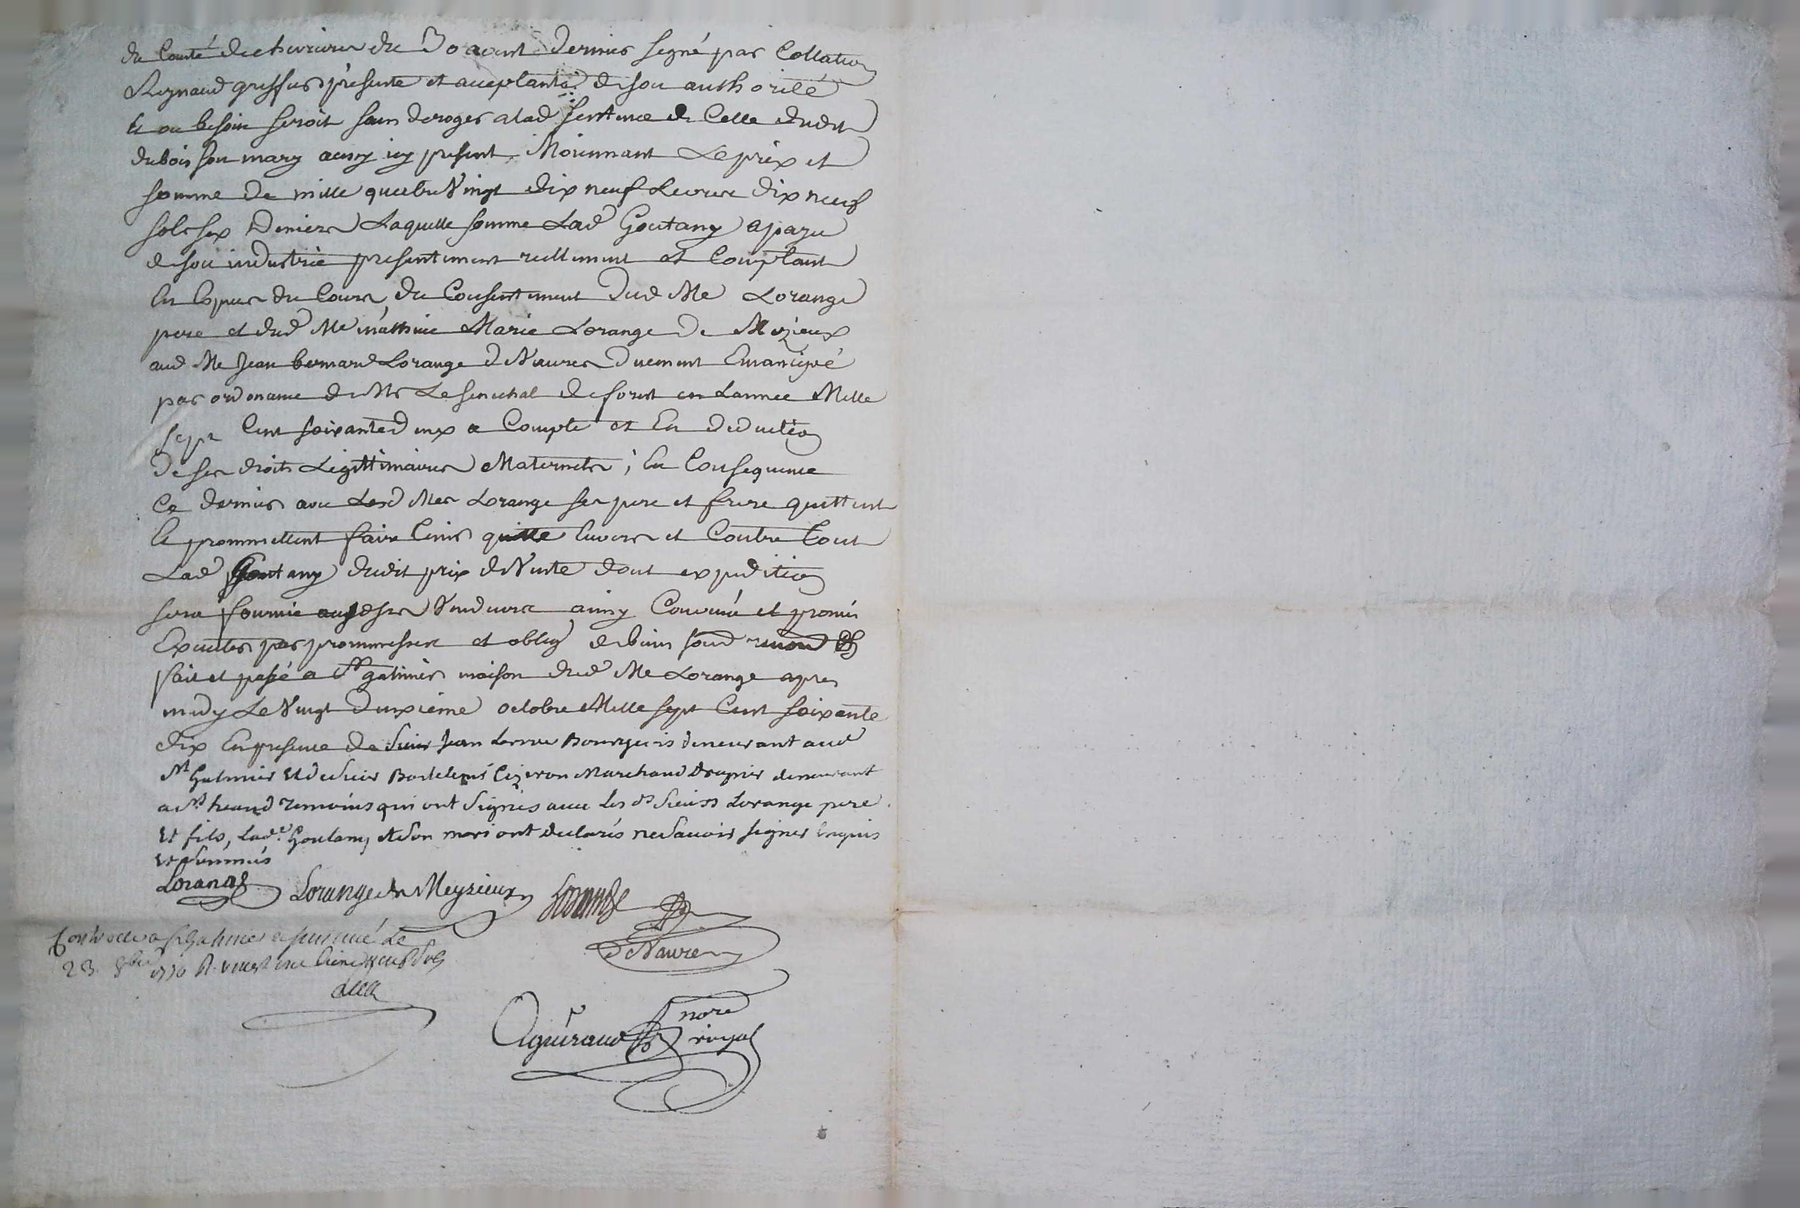 du Comté de chevrieres du 30 aoust dernier signé par Collation
Reynaud greffier présente et acceptante de son authorité
Et ou besoin seroit sans deroger a lad sentence de Celle dudit
dubois son mary aussy icy present Moiennant Le prix et
somme de mille quatre Vingt dix neuf Livres dix neuf
sols six Deniers Laquelle somme Lad Goutany a payé
de son industrie presentement reellement et Comptant
En Especes du Cours du Consentement Dud Me Lorange
pere et dud Me Marie Lorange De Mezieux
aud Me Jean bernard Lorange de Navres Duement Emancipé
par ordonance de Mr Le senechal de forest en Lannee Mille
sept Cent soixante deux a Compte et En deduction
De ses droits Légittimaires Maternels ; En Consequence
Ce dernier avec Lesd Mes Lorange ses pere et frere quittent
Et prommettent faire tenir quitte Envers et Contre tout
Lad Goutany dudit prix de Vente dont expedition
sera fournie auxd srs Vendeurs ainsy Convenu et promis
Executer par prommesses et oblig de biens soud renond
fait et passé a St galmier maison dud Me Lorange apres
midy Le Vingt Deuxieme octobre Mille sept Cent soixante
dix En presence de sieur Jean Bourgeois demeurant aud
St Galmier Et de sieur Bartelemi Cizeron Marchand Drapier demeurant
a St heand temoins qui ont Signés avec Les ds Sieurs Lorange pere
Et fils, Lade Goutany et son mari ont declarés ne Savoir signer Enquis
et sommés
Lorange Lorange de Meyzieux Lorange
De Navres
Controllé a St Galmier le
23 8bre 1770 R.
Aguiraud nore
royal